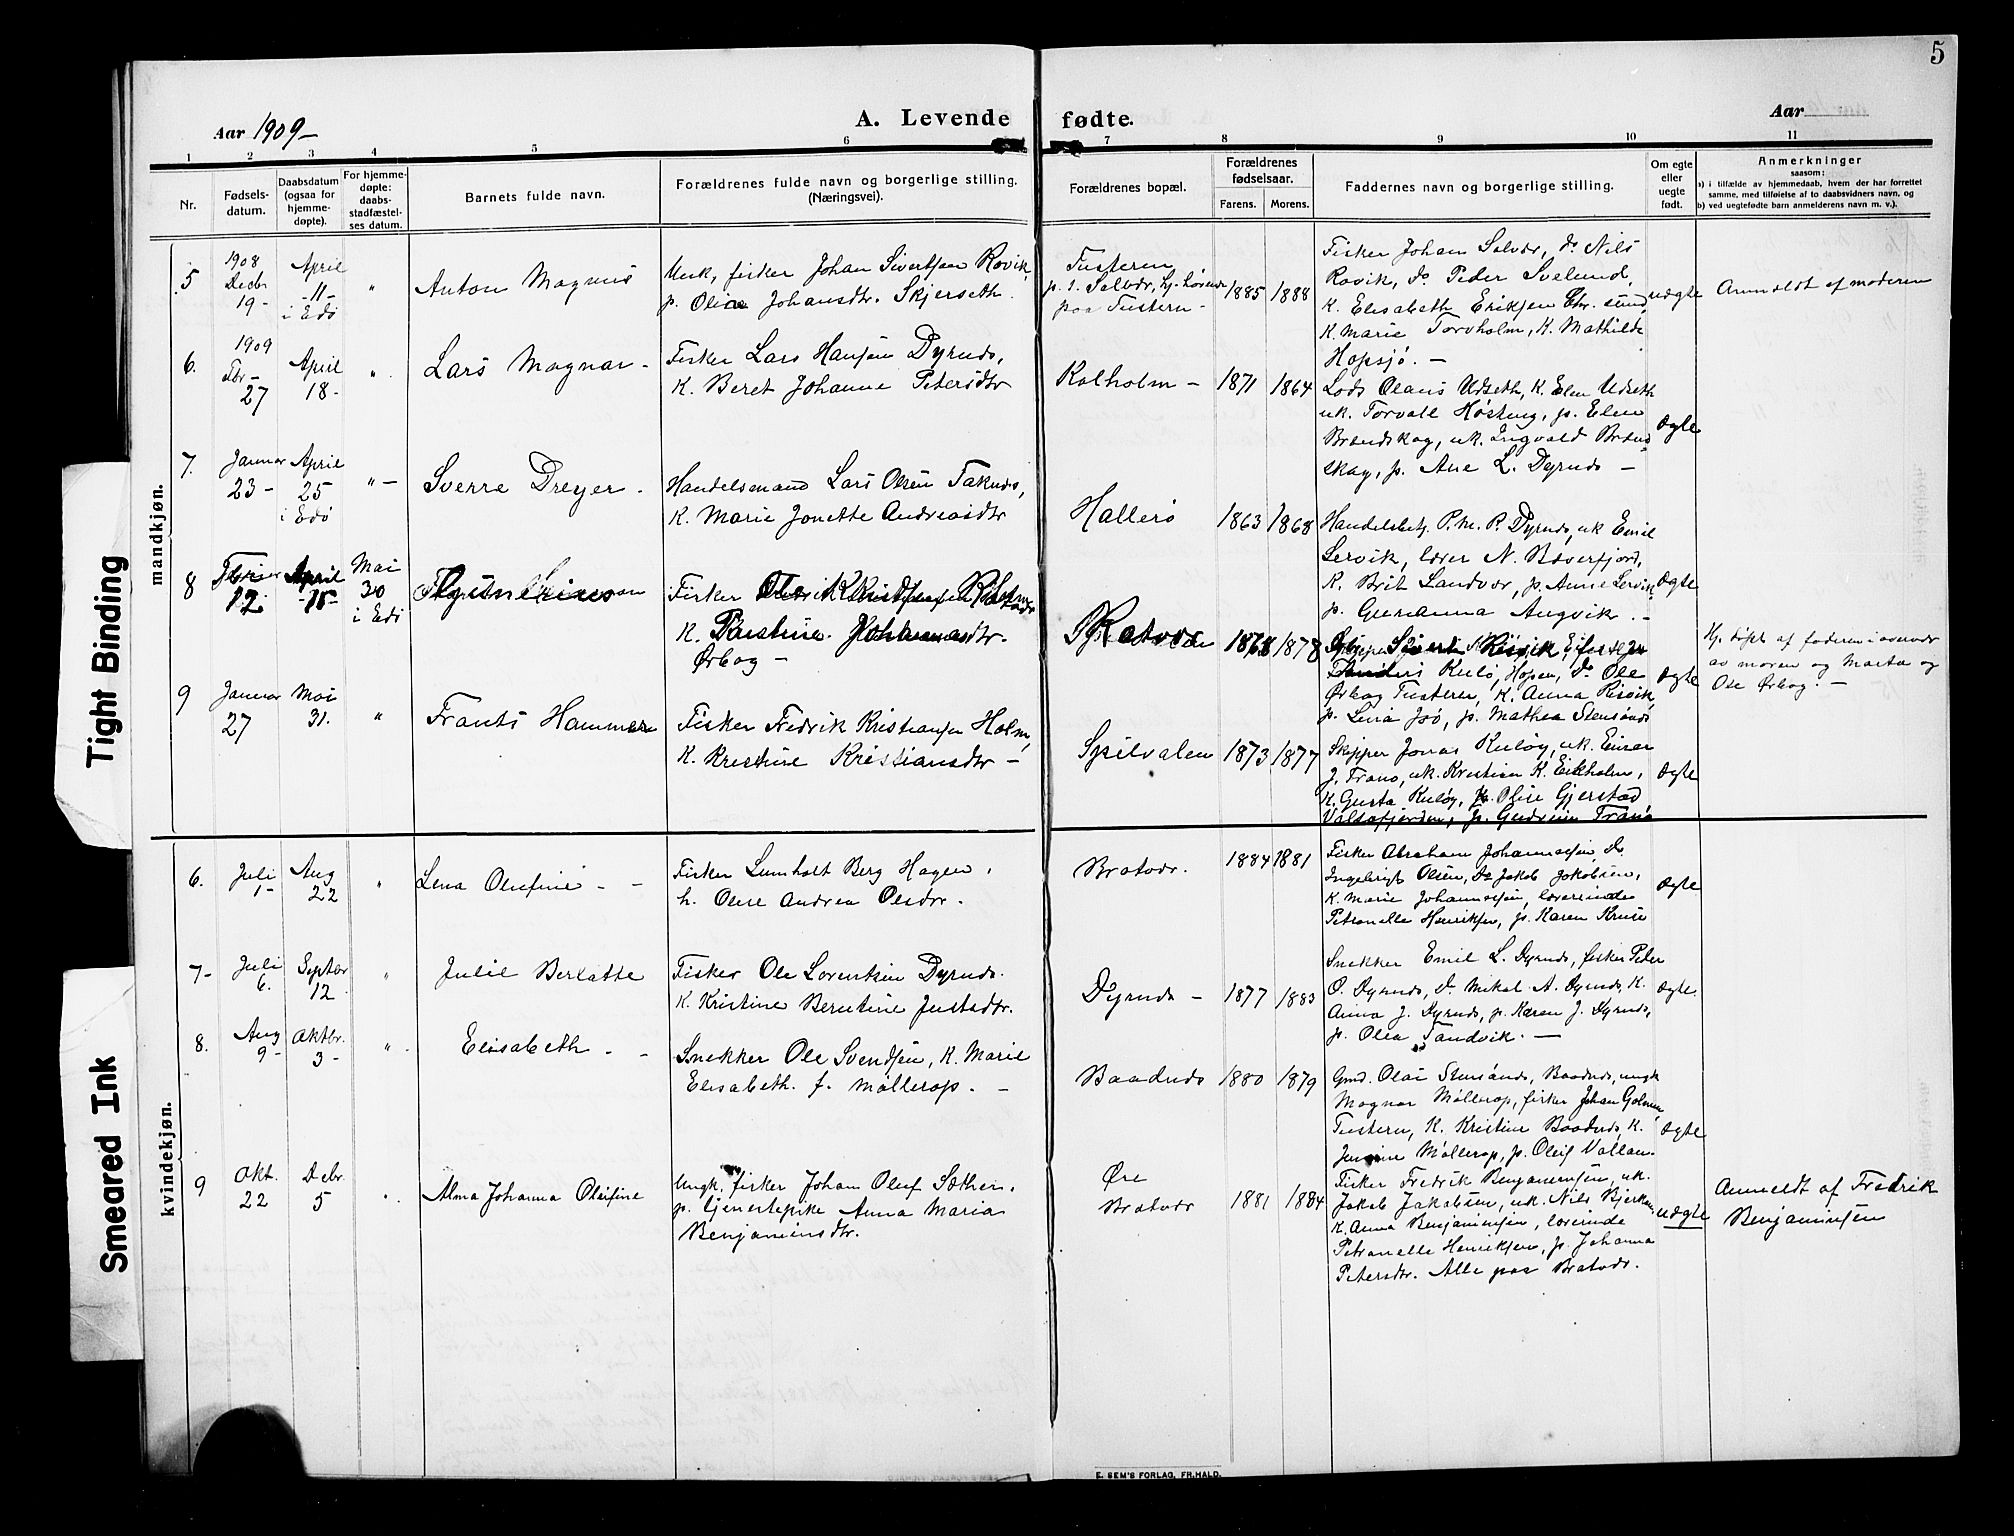 5
Aar 1909-
A. Levende fødte.
Aar
1 2 3 4 5 6 7 8 9 10 11
Nr.
Fødsels-
datum.
Daabsdatum
(ogsaa for
hjemme-
døpte).
For hjemme-
døpte:
daabs-
stadfæstel-
ses datum.
Barnets fulde navn.
Forældrenes fulde navn og borgerlige stilling.
(Næringsvei).
Forældrenes bopæl.
Forældrenes
fødselsaar.
Farens. Morens.
Faddernes navn og borgerlige stilling.
Om egte
eller
uegte
født.
Anmerkninger
saasom:
a) i tilfælde av hjemmedaab, hvem der har forrettet
samme, med tilføielse af to daabsvidners navn, og
b) ved uegtefødte barn anmelderens navn m. v.).
mandkjøn.
5
1908
Decbr
19 -
April
-11-
i Edø
"
Anton Magnus
Unk, fisker Johan Sivertsen Rovik,
p. Oline Johansdtr. Skjerseth.
Tusteren
paa Tusteren -
1885 1888
Fisker Johan Solvær, do Nils
Rovik, do Peder Svelund,
K. Elisabeth Eriksen
K. Marie Torvholm, K. Mathilde
Hopsjø. -
uægte
Anmeldt af moderen
6.
1909
Fbr -
27
April
18 -
"
Lars Magnar -
Fisker Lars Hansen Dyrnds,
K. Beret Johanne Petersdtr
Kolholm -
1871 1864
Lods Olaus Udseth, K. Elen Udseth
uk. Torvall p. Elen
Brandskog, uk. Ingvald Brand
skog, p. Ane L. Dyrnds -
Ægte
7.
Januar
23 -
April
25
i Edø
" -
Sverre Dreyer -
Handelsmand Lars Olsen Taknds,
K. Marie Jonette Andreasdtr
Hallerø
1863 1868
Handelsbetj. P. M. P. Dyrnds, uk Emil
Lervik, lærer N. Bæverfjord,
K. Brit Sandvær, p. Anne Lervik
p. Gurianna Angvik. -
Ægte
8
12
April
-15-
Mai
30
i Edø
Fisker
K.
Ørbog -
1878
Kuløy, Hopen, do Ole
Ørbog Tusteren, K. Anna Risvik
p. Lina Jsø, p. Mathea Stensønds
Ægte
Hj. døpt af faderen i overvær
av moren og Marta og
Ose Ørbog. -
9
Januar
27
Mai
31.
"
Frants Hammer
Fisker Fredrik Kristiansen Holm,
K. Kristine Kristiansdtr -
Spilvalen
1873 1877
Skipper Jonas Kuløy, uk. Einar
J. Tranø, uk. Kristian K. Eikholm,
K. Gusta Kuløy, p. Oline Gjerstad
Valsøfjorden, p. Gudrun Tranø
Ægte
kvindekjøn.
6.
Juli
1-
Aug
22
"
Lena Olufine - -
Fisker Lumholt Berg Hagen,
h. Oline Andrea Olsdtr.
Bratvær.
1884 1881
Fisker Abraham Johannesen, do.
Ingebrigt Olsen, do Jakob Jakobsen,
K. Marie Johannesen, lærerinde
Petronelle Henriksen, p. Karen Kruse
Ægte
7-
Juli
6.
Septbr
12
"
Julie Berlotte
Fisker Ole Lorentsen Dyrnds.
K. Kristine Berntine Justsdtr.
Dyrnds -
1877 1883
Snekker Emil L. Dyrnds, fisker Peder
O. Dyrnds, do. Mikal A. Dyrnds, K.
Anna J. Dyrnds, p. Karen J. Dyrnds,
p. Olea Sandvik. -
Ægte.
8.
Aug
9 -
Oktbr.
3 -
"
Elisabeth - -
Snekker Ole Svendsen, K. Marie
Elisabeth. f. Møllerop. -
Baadnds
1880 1879
Gmd. Olai Stensønds, Baadnds, ungk
Magnar Møllerop, fisker Johan Golmen
Tusteren, K. Kristine Baadnds, K.
Jensine Møllerop, p. Oleif Vollan.
Ægte
9
Okt.
22
Debr
5
"
Alma Johanna Oleifine
Ungk. fisker Johan Oluf Sæther.
p. tjenestepike Anna Maria
Benjaminsdtr.
Øre
Bratvær
1881 1884
Fisker Fredrik Benjaminsen, uk.
Jakob Jakobsen, uk. Nils Bjerkan,
K. Anna Benjaminsen, lærerinde
Petronelle Henriksen, p. Johanna
Petersdtr. Alle paa Bratvær.
uægte
Anmeldt af Fredrik
Benjaminsen
E. SEM'S FORLAG, FR.HALD.
Tight Binding
Smeared Ink